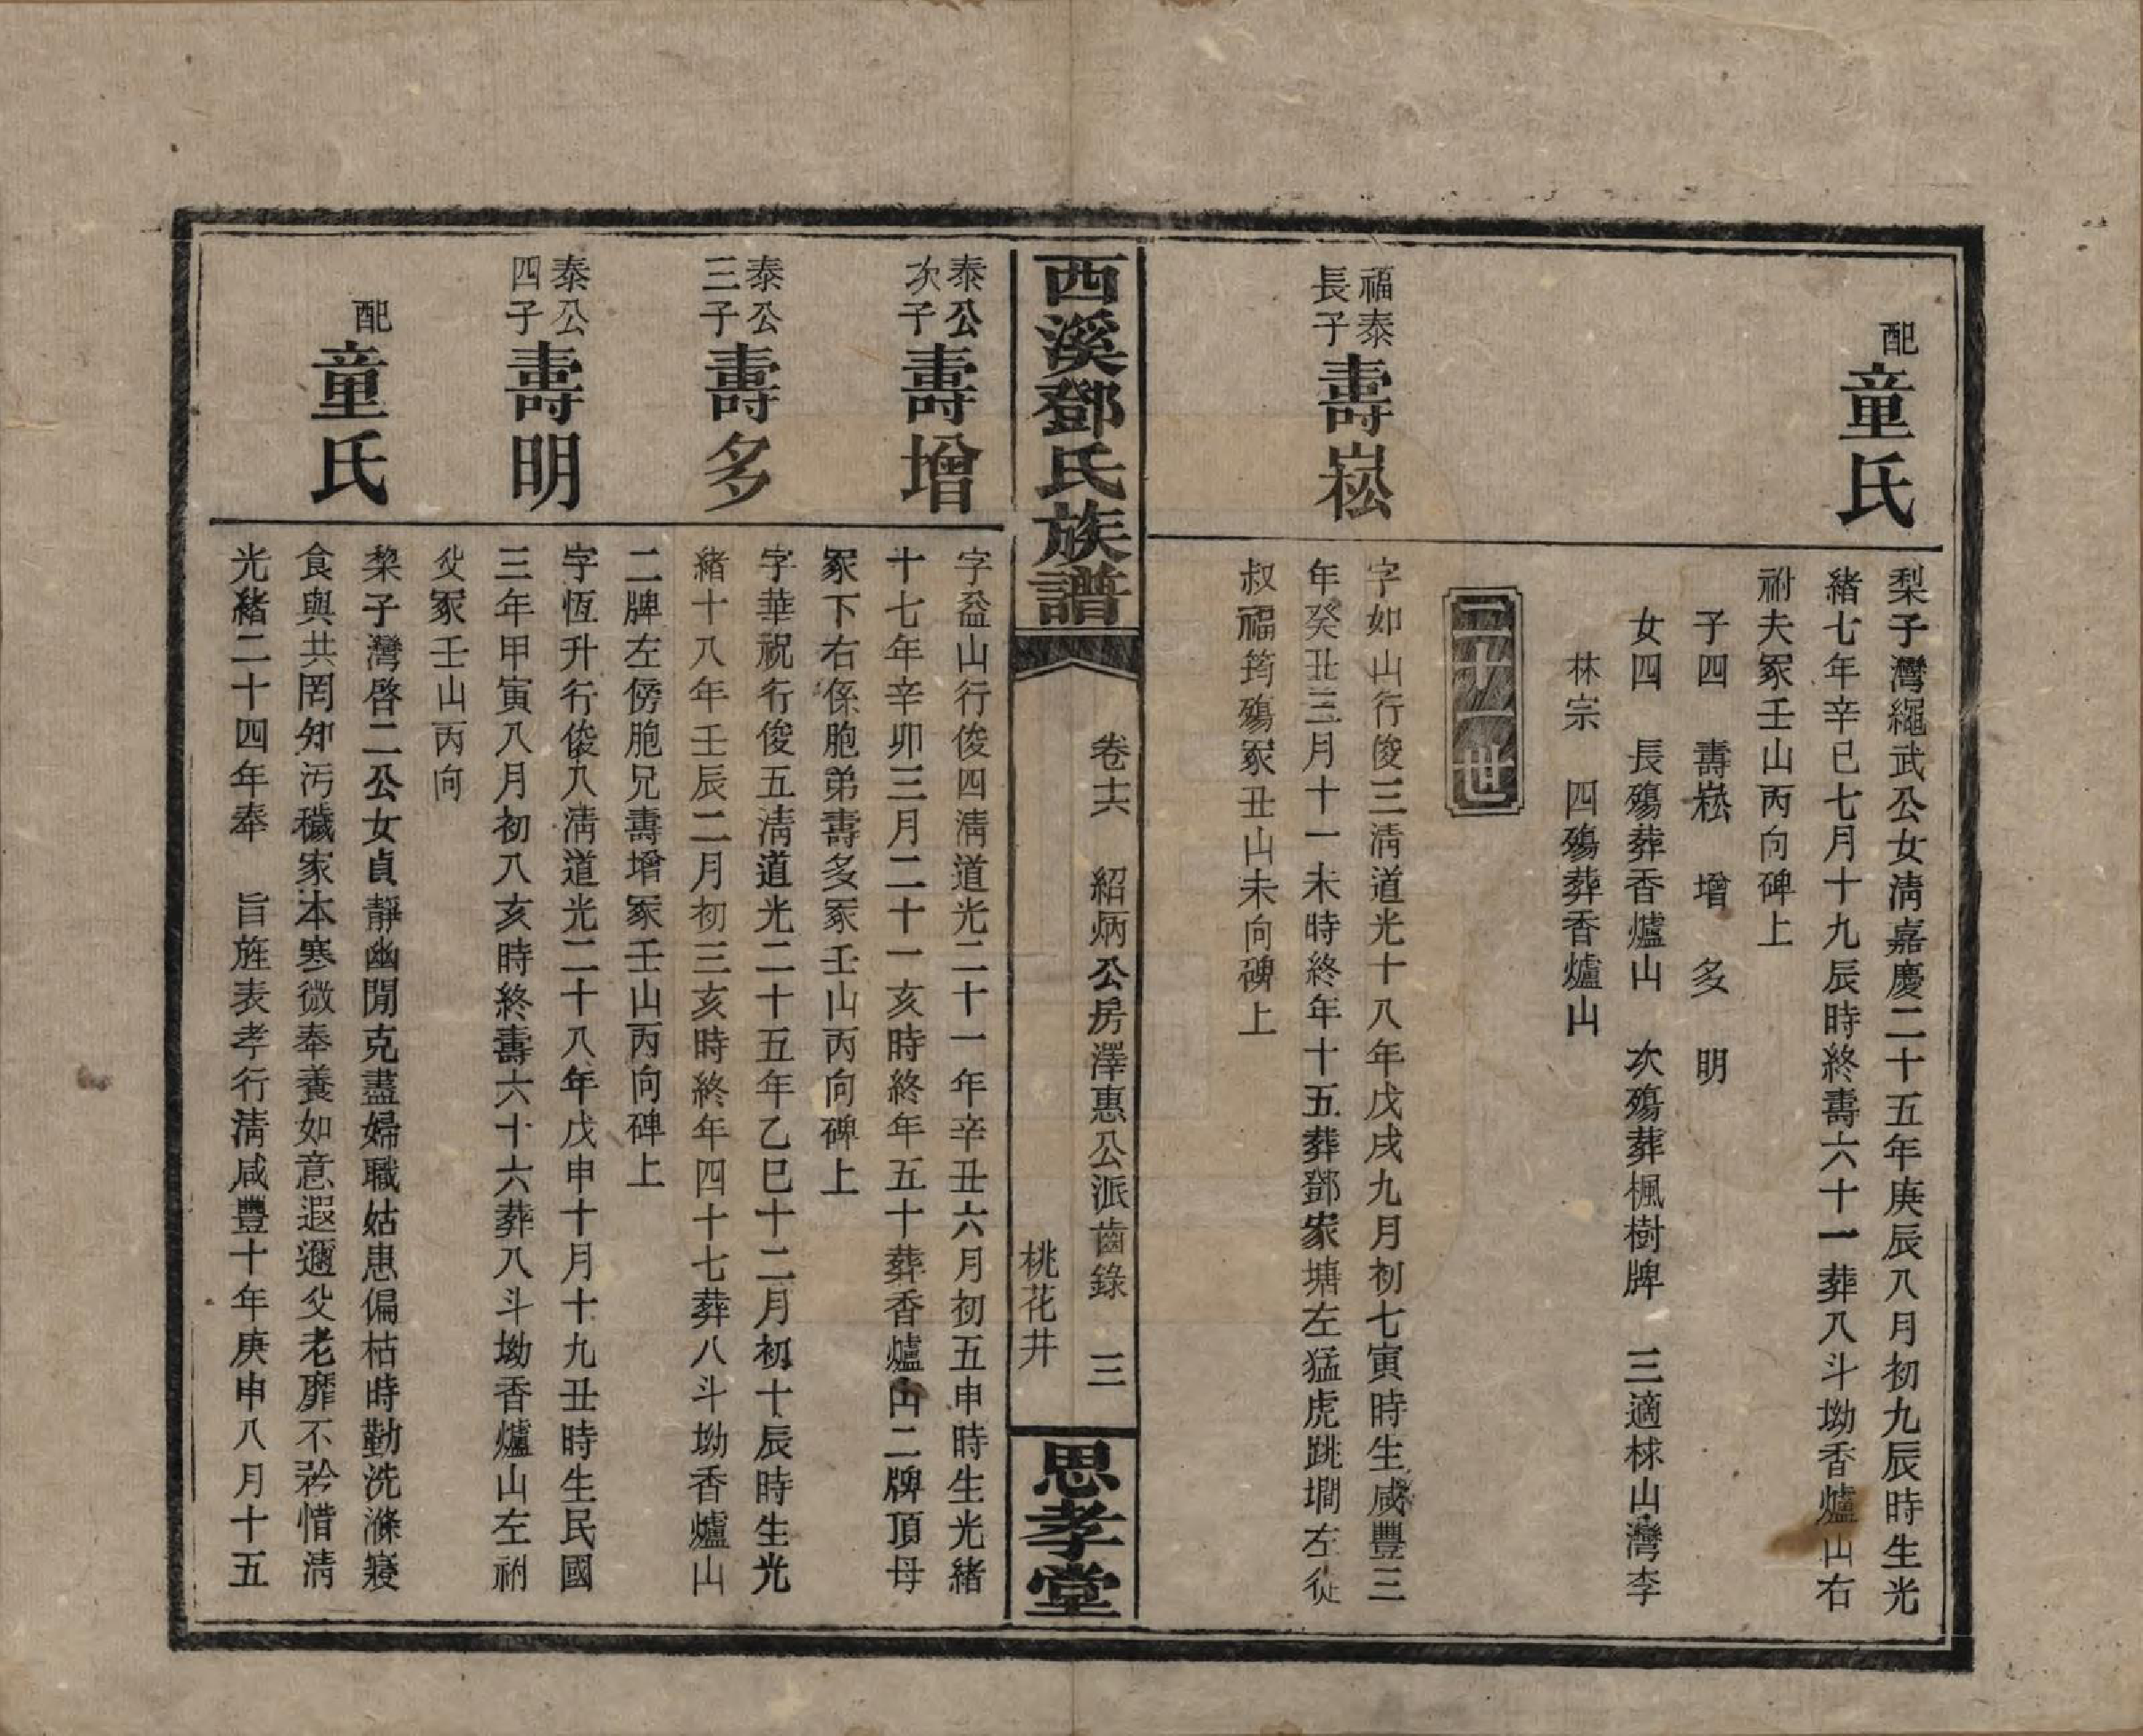 配
童氏
梨子灣繩武公女清嘉慶二十五年庚辰八月初九辰時生光
緒七年辛巳七月十九辰時終壽六十一葬八斗坳香爐山右
祔夫冢壬山丙向碑上
子四 壽崧 增 多 明
女四 長殤葬香爐山 次殤葬楓樹牌 三適梂山灣李
林宗 四殤葬香爐山
二十一世
福泰
長子
壽崧
字如山行俊三清道光十八年戊戌九月初七寅時生咸豐三
年癸丑三月十一未時終年十五葬鄧家塘左猛虎跳澗左從
叔福筠殤冢丑山未向碑上
西溪鄧氏族譜
卷十六 紹炳公房澤惠公派齒錄 三
桃花井
思孝堂
泰公
次子
壽增
字益山行俊四清道光二十一年辛丑六月初五申時生光緒
十七年辛卯三月二十一亥時終年五十葬香爐山二牌頂母
冢下右係胞弟壽多冢壬山丙向碑上
泰公
三子
壽多
字華祝行俊五清道光二十五年乙巳十二月初十辰時生光
緒十八年壬辰二月初三亥時終年四十七葬八斗坳香爐山
二牌左傍胞兄壽增冢壬山丙向碑上
泰公
四子
壽明
字恆升行俊八清道光二十八年戊申十月十九丑時生民國
三年甲寅八月初八亥時終壽六十六葬八斗坳香爐山左祔
父冢壬山丙向
配
童氏
棃子灣啓二公女貞靜幽閒克盡婦職姑患偏枯時勤洗滌寢
食與共罔知汚穢家本寒微奉養如意遐邇父老靡不矜惜清
光緒二十四年奉 旨旌表孝行清咸豐十年庚申八月十五